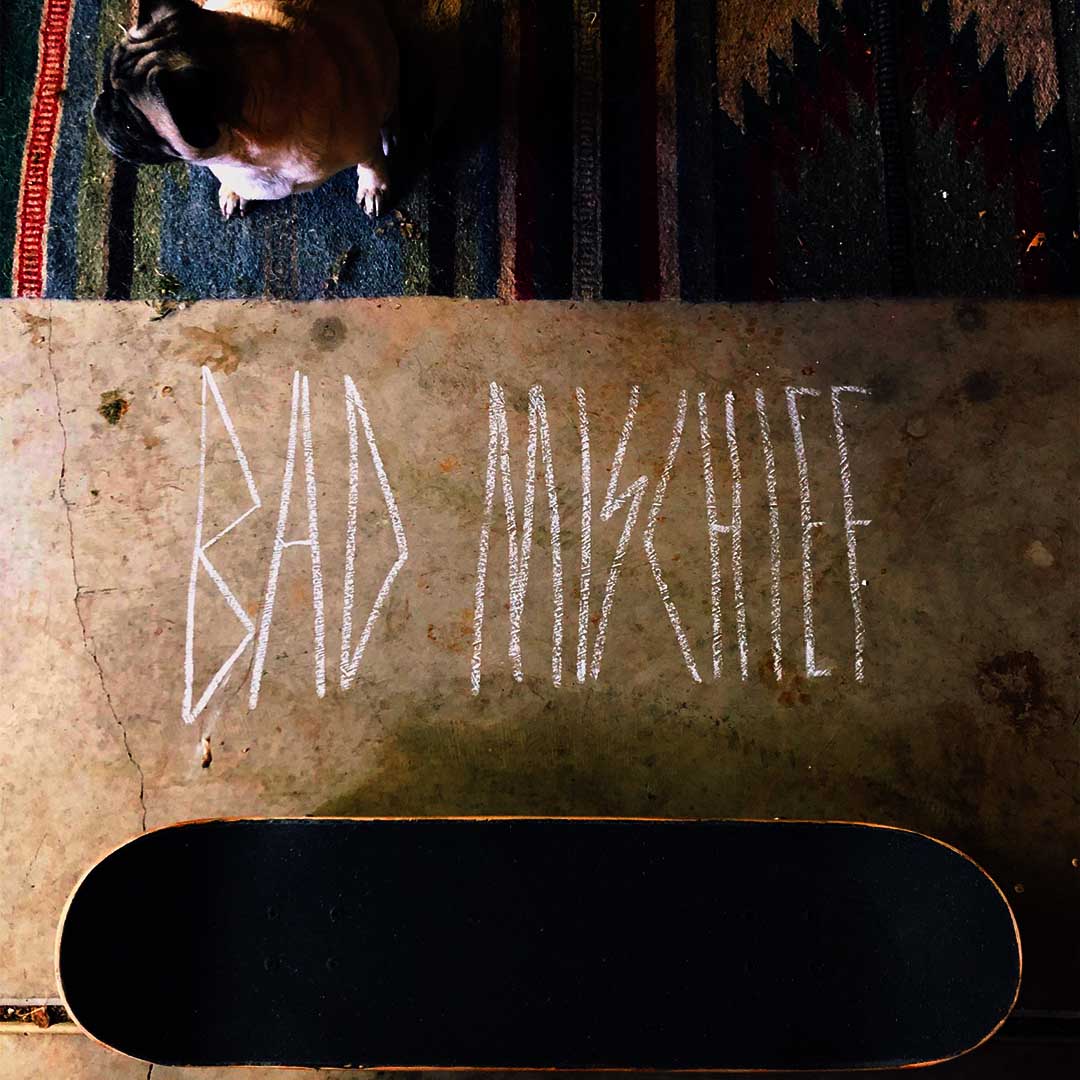 BAD MISCHIEF